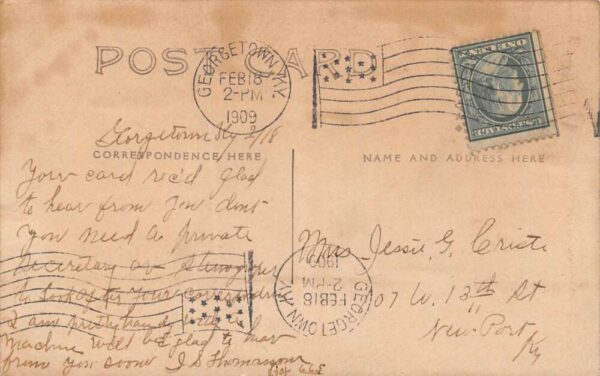 POST CARD
GEORGETOWN, KY.
FEB 18
2-PM
1909
U.S. POSTAGE
ONE CENT
Georgetown Ky 2/18
CORRESPONDENCE HERE
NAME AND ADDRESS HERE
Your card rec'd glad
to hear from you dont
you need a private
Secretary or
to look after your
I am pretty handy with
machine will be glad to hear
from you soon J S Thomason
Box
Mrs. Jessie G. Criste
07 W. 13th St
New-Port
Ky
GEORGETOWN, KY.
FEB 18
2-PM
1909